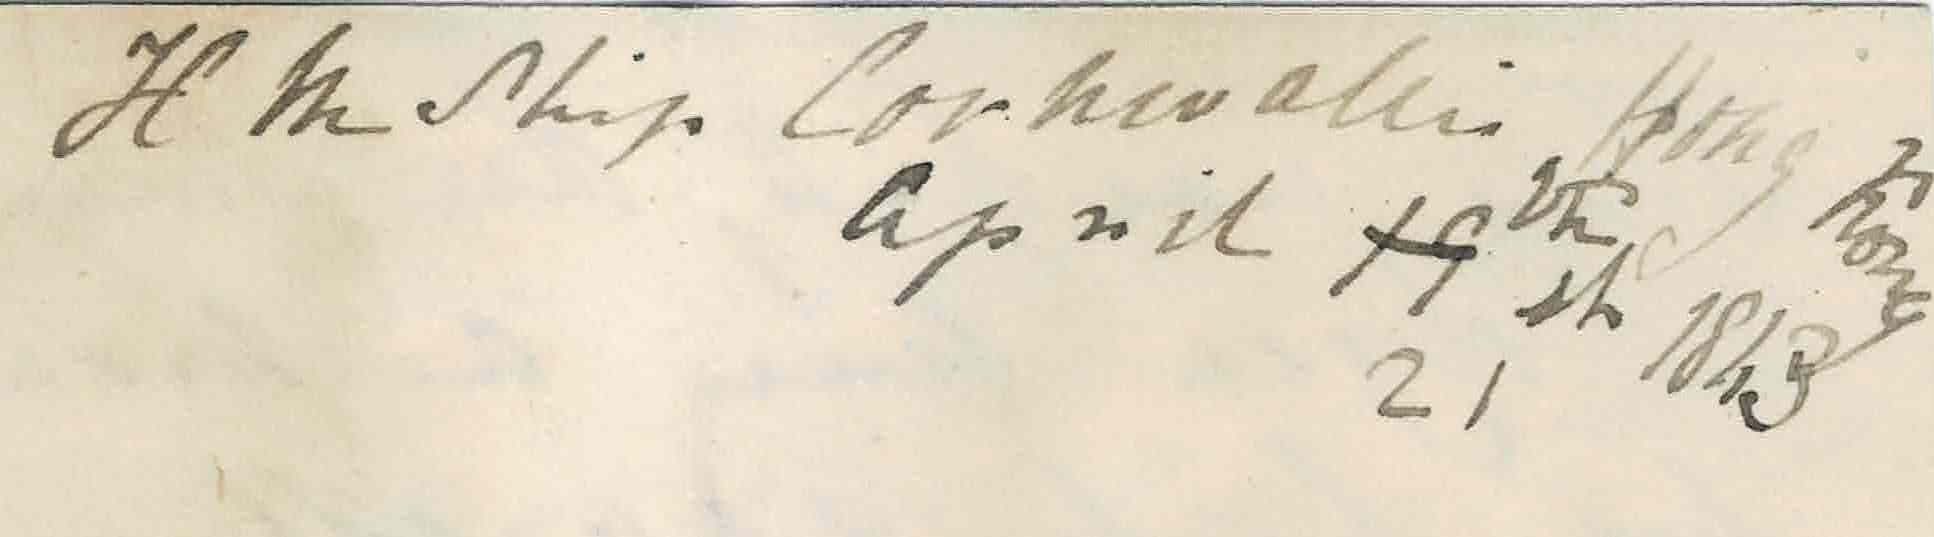 H M Ship Cornwallis Hong Kong
April 19th
21st 1843